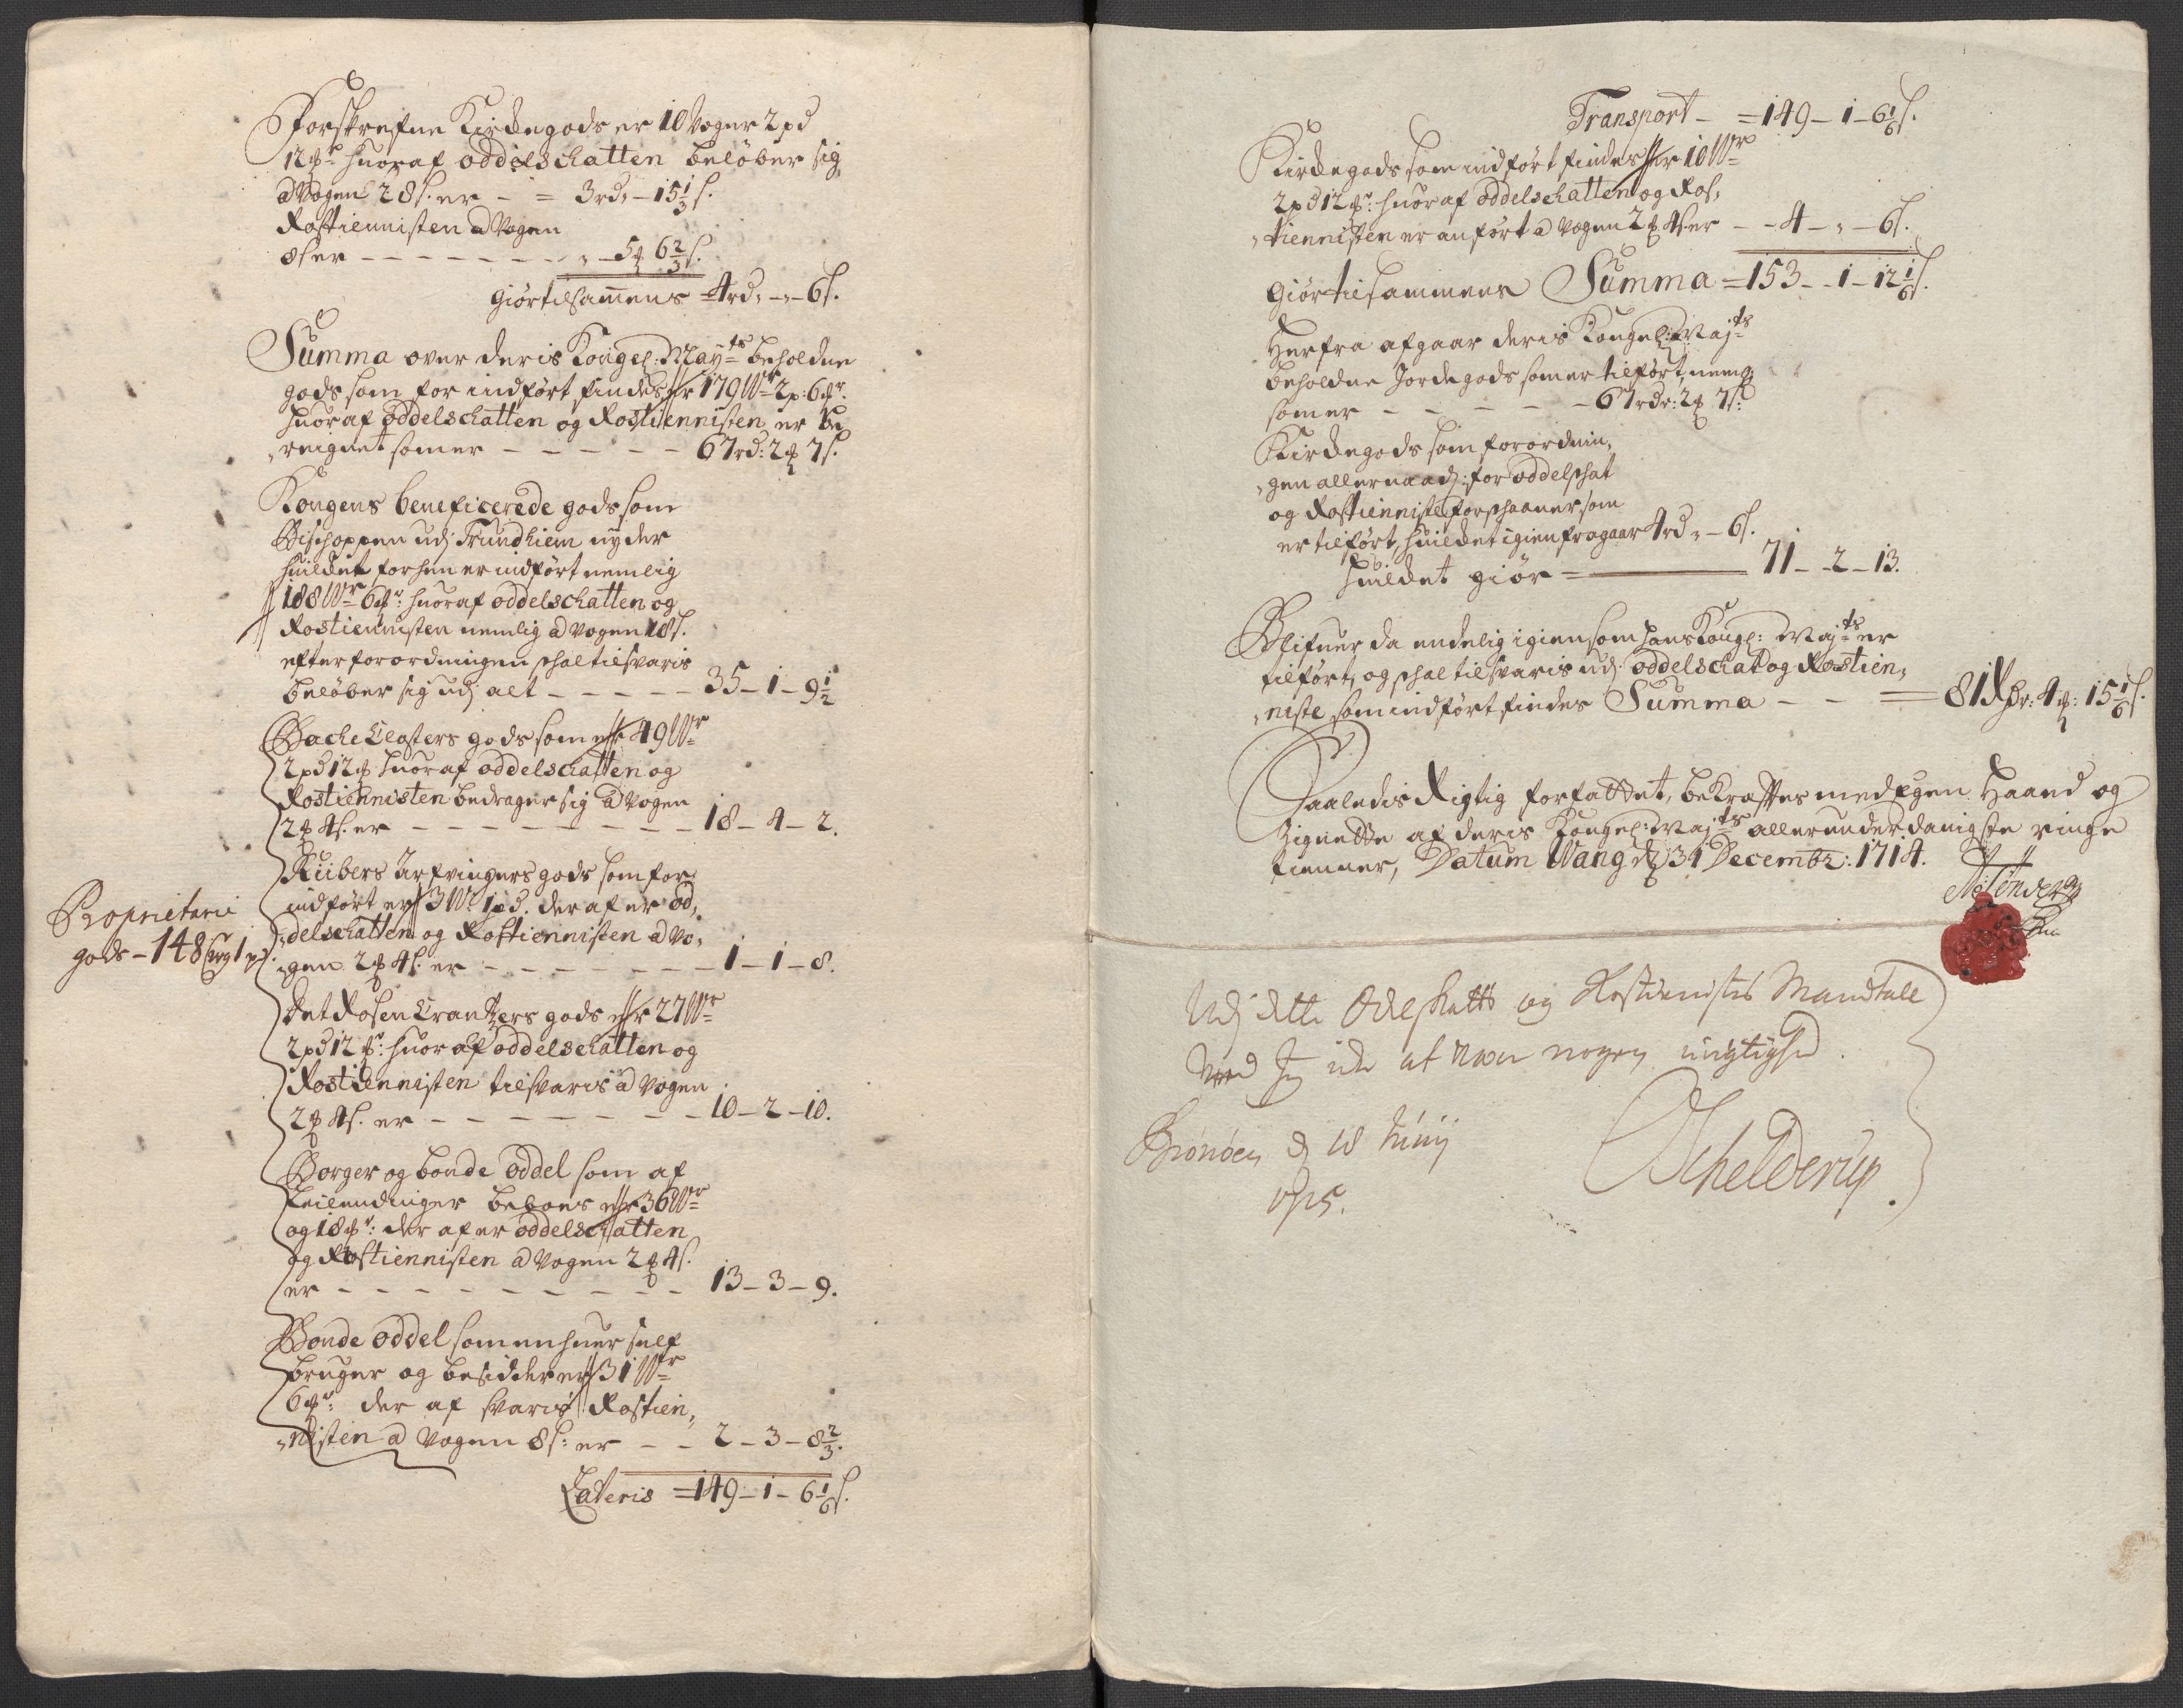 Forskrefne Kirckegods er 10 Voger 2 pd
12 ℔r huoraf oddelschatten beløber sig
a Vogen 28 s. er - = 3 rd, - 15 1/3 s.
Rostiennisten a Vogen
8 s er - - - - - - - " - 5 ℔ 6 2/3 s.
Giør tilsammens = 4 rd, - " - 6 s.
Summa over deris Kongel: Mayts beholdne
gods som for indført findes er 179 Wr 2 p: 6 ℔r.
huoraf oddelschatten og Rostiennisten er be
"reignet som er - - - - - 67 rd: 2 ℔ 7 s.
Kongens beneficerede gods som
Bischoppen udj Trundhiem nyder
huilcket forhen er indført nemlig
188 Wr 6 ℔r: huoraf oddelschatten og
Rostiennisten nemlig a Vogen 18 s.
efter forordningen schal tilsvaris
beløber sig udj alt - - - - - 35 - 1 - 9 1/2
Bache Closters gods som er 49 Wr
2 pd 12 ℔ huoraf oddelschatten og
Rostiennisten bedrager sig a Vogen
2 ℔ 4 s. er - - - - - - - - 18 - 4 - 2.
Ruibers Arfvingers gods som for
indført er 3 W: 1 pd. der af er od,
"delschatten og Rostiennisten a Vo,
"gen 2 ℔ 4 s. er - - - - - - - 1 - 1 - 8.
Proprietarie
gods - 148 Wog 1 pd.
Det Rosencrantzers gods er 27 Wr
2 pd 12 ℔r: huor af oddelschatten og
Rostiennisten tilsvaris a Vogen
2 ℔ 4 s. er - - - - - - - - 10 - 2 - 10.
Borger og bonde oddel som af
Leilendinger beboes er 36 Wr
og 18 ℔r: der af er oddelschatten
og Rostiennisten a Vogen 2 ℔ 4 s.
er - - - - - - - - - 13 - 3 - 9.
Bonde oddel som enhuer self
bruger og besidder er 31 Wr
6 ℔r: der af svaris Rostien,
"nisten a Vogen 8 s: er - - 2 - 3 - 8 2/3.
Lateris = 149 - 1 - 6 1/6 s.
Transport - = 149 - 1 - 6 1/6 s.
Kirckegods som indført findes er 10 Wr
2 pd 12 ℔r: huoraf oddelschatten og Ros,
"tiennisten er anført a Vogen 2 ℔ 4 s er - - 4 - " - 6 s.
Giør tilsammens Summa = 153 - 1 - 12 1/6 s.
Herfra afgaar deris Kongel: Majts
beholdne Jordegods som er tilført, nemlig
som er - - - - - 67 rdr: 2 ℔ 7 s:
Kirckegods som forordnin,
"gen allernaad: for oddelschat
og Rostienniste forschaaner som
er tilført, huilcket igien fragaar 4 rd " - 6 s.
huilcket giør = 71 - 2 - 13.
Blifuer da endelig igien som hans Kongl: Majts er
tilført, og schal tilsvaris udj oddelschat og Rostien,
"niste som indført findes Summa - - = 81 Rdr: 4 ℔: 15 1/6 s.
Saaledis Rigtig forfattet, bekræftes med Egen Haand og
Zignette af deris Kongel: Majts allerunderdanigste ringe
tienner, Datum Wang d 31 Decembr: 1714.
Udj dette Odelskatts og Rostienistes Mandtall
veed Jeg icke at være nogen urigtighed.
Brønøen d 18 Junij
1715.
Schelderup.